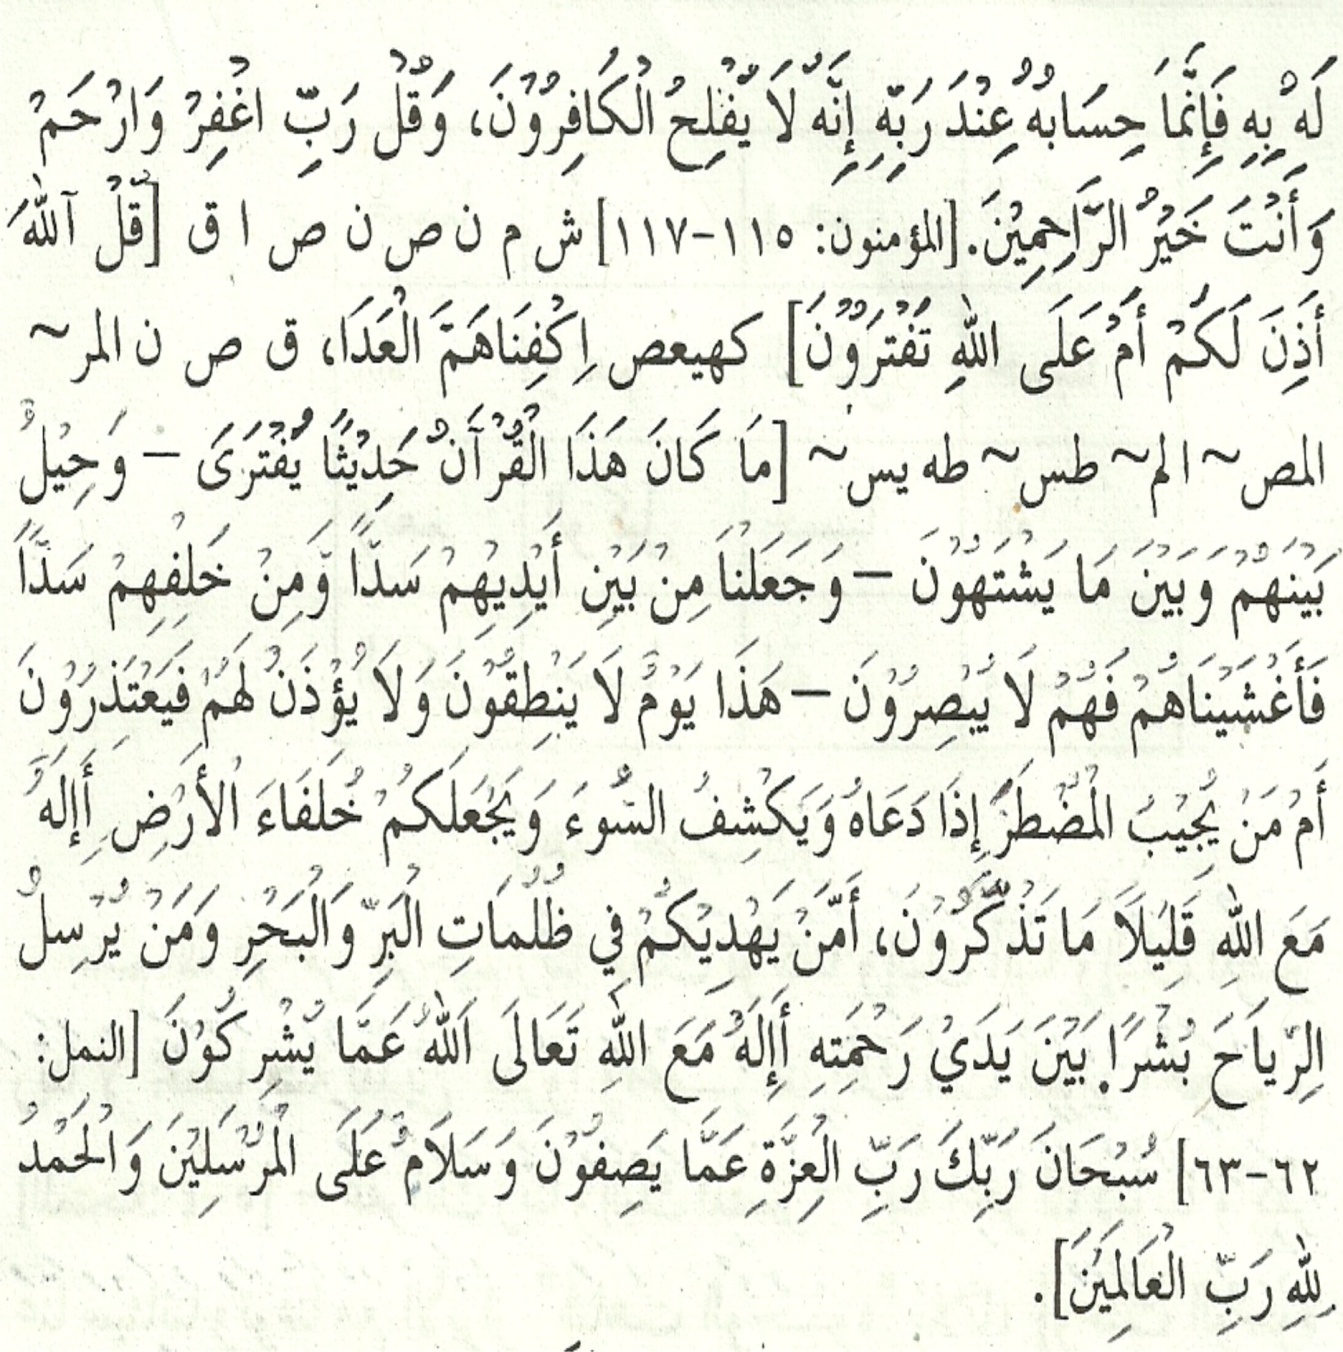 لَهُ بِهِ فَإِنَّمَا حِسَابُهُ عِنْدَ رَبِّهِ إِنَّهُ لَا يُفْلِحُ الْكَافِرُوْنَ، وَقُلْ رَبِّ اغْفِرْ وَارْحَمْ
وَأَنْتَ خَيْرُ الرَّاحِمِيْنَ. [المؤمنون: ١١٥-١١٧] ش م ن ص ن ص ا ق [قُلْ آللهُ
أَذِنَ لَكُمْ أَمْ عَلَى اللهِ تَفْتَرُوْنَ] كهيعص اِكْفِنَاهَمَّ الْعَدَا، ق ص ن المر~
المص~ الم~ طس~ طه يس~ [مَا كَانَ هَذَا الْقُرْآنُ حَدِيْثًا يُفْتَرَى – وَحِيْلَ
بَيْنَهُمْ وَبَيْنَ مَا يَشْتَهُوْنَ – وَجَعَلْنَا مِنْ بَيْنِ أَيْدِيْهِمْ سَدًّا وَّمِنْ خَلْفِهِمْ سَدًّا
فَأَغْشَيْنَاهُمْ فَهُمْ لَا يُبْصِرُوْنَ – هَذَا يَوْمُ لَا يَنْطِقُوْنَ وَلَا يُؤْذَنُ لَهُمْ فَيَعْتَذِرُوْنَ
أَمْ مَنْ يُجِيْبُ الْمُضْطَرَّ إِذَا دَعَاهُ وَيَكْشِفُ السُّوءَ وَيَجْعَلُكُمْ خُلَفَاءَ الْأَرْضِ أَإِلَهٌ
مَعَ اللهِ قَلِيْلًا مَا تَذَكَّرُوْنَ، أَمَّنْ يَهْدِيْكُمْ فِي ظُلُمَاتِ الْبَرِّ وَالْبَحْرِ وَمَنْ يُرْسِلُ
الرِّيَاحَ بُشْرًا بَيْنَ يَدَيْ رَحْمَتِهِ أَإِلَهٌ مَعَ اللهِ تَعَالَى اللهُ عَمَّا يُشْرِكُوْنَ [النمل:
٦٢-٦٣] سُبْحَانَ رَبِّكَ رَبِّ الْعِزَّةِ عَمَّا يَصِفُوْنَ وَسَلَامٌ عَلَى الْمُرْسَلِيْنَ وَالْحَمْدُ
لِلّٰهِ رَبِّ الْعَالَمِيْنَ].